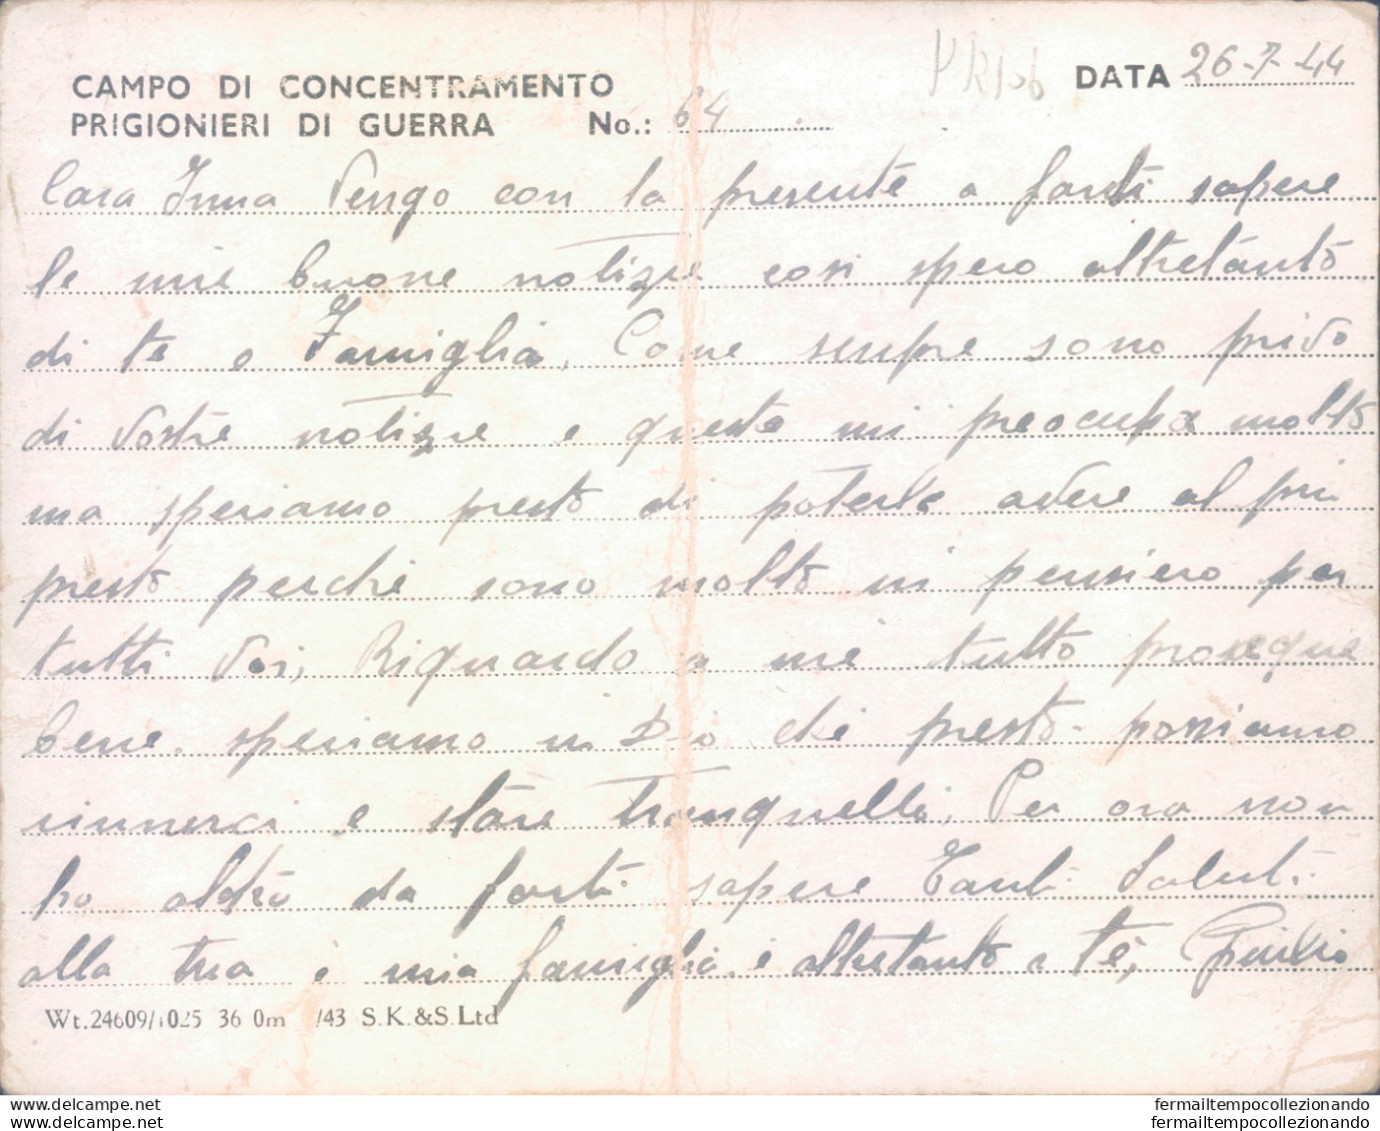 CAMPO DI CONCENTRAMENTO
PRIGIONIERI DI GUERRA No.: 64 DATA 26-7-44
Cara Inna Vengo con la presente a farti sapere
le mie buone notizie cosi spero altretanto
di te e Famiglia. Come sempre sono privo
di vostre notizie e questo mi preocupa molto
ma speriamo presto di poterle avere al piu
presto perche sono molto in pensiero per
tutti voi, Riguardo a me tutto prosegue
bene. speriamo in Dio che presto possiamo
riunirci e stare tranquelli. Per ora non
ho altro da farti sapere Tanti Saluti
alla tua e mia famiglia e altretanto a te, Giulio
Wt.24609/1025 36 0m /43 S.K.&S.Ltd
fermailtempocollezionando
fermailtempocollezionando